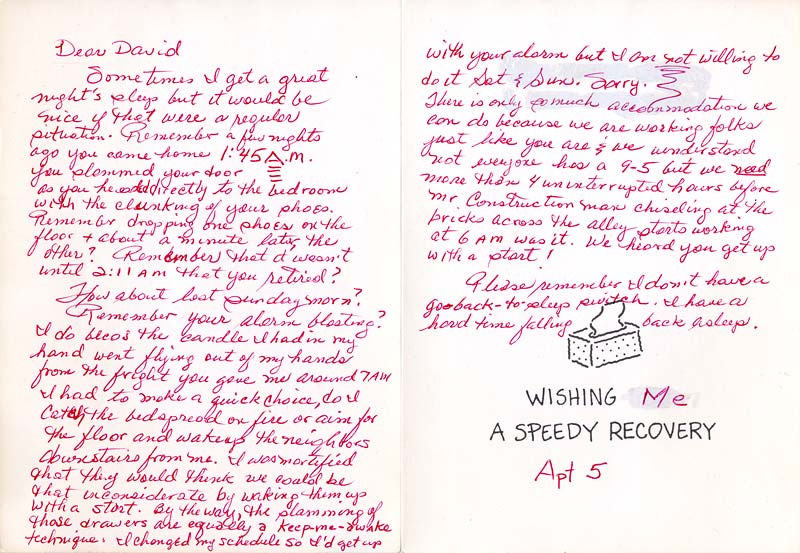 Dear David
Sometimes I get a great
night's sleep but it would be
nice if that were a regular
situation. Remember a few nights
ago you came home 1:45 A.m.
you slammed your door
as you headed directly to the bedroom
with the clunking of your shoes.
Remember dropping one shoe on the
floor + about a minute later, the
other? Remember that it wasn't
until 2:11 AM that you retired?
How about last Sunday morn?
Remember your alarm blasting?
I do becos the candle I had in my
hand went flying out of my hands
from the fright you gave me around 7AM
I had to make a quick choice, do I
catch the bedspread on fire or aim for
the floor and wakeup the neighbors
downstairs from me. I was mortified
that they would think we could be
that inconsiderate by waking them up
with a start. By the way, the slamming of
those drawers are equally a keep-me-awake
technique. I changed my schedule so I'd get up
with your alarm but I am not willing to
do it Sat & Sun. Sorry.
There is only so much accommodation we
can do because we are working folks
just like you are & we understand
not everyone has a 9-5 but we need
more than 4 uninterrupted hours before
Mr. Construction man chiseling at the
bricks across the alley starts working
at 6 AM was it. We heard you get up
with a start!
Please remember I don't have a
go-back-to-sleep switch. I have a
hard time falling back asleep.
WISHING Me
A SPEEDY RECOVERY
Apt 5